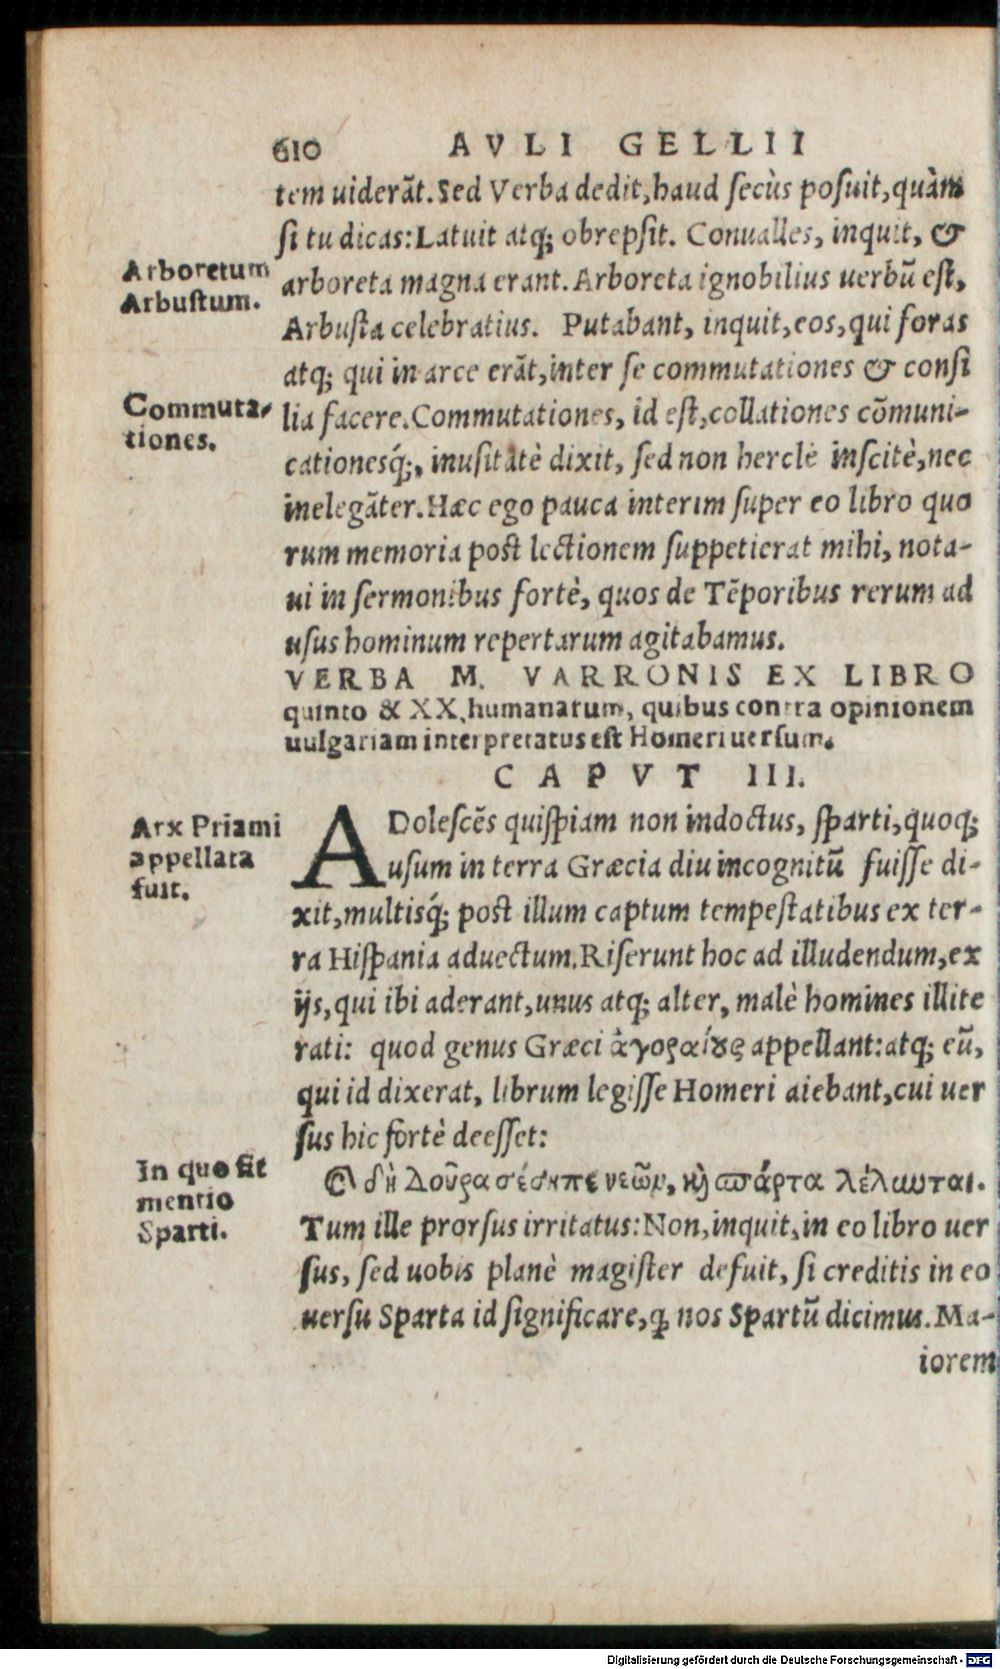 610 AVLI GELLII
tem uiderāt. Sed Verba dedit, haud secùs posuit, quàm
si tu dicas: Latuit atq; obrepsit. Conualles, inquit, &
Arboretum
Arbustum.
arboreta magna erant. Arboreta ignobilius uerbū est,
Arbusta celebratius. Putabant, inquit, eos, qui foras
atq; qui in arce erāt, inter se commutationes & consi
Commuta-
tiones.
lia facere. Commutationes, id est, collationes cōmuni-
cationesq́;, inusitatè dixit, sed non hercle inscitè, nec
inelegāter. Hæc ego pauca interim super eo libro quo
rum memoria post lectionem suppetierat mihi, nota-
ui in sermonibus fortè, quos de Tēporibus rerum ad
usus hominum repertarum agitabamus.
VERBA M. VARRONIS EX LIBRO
quinto & XX. humanarum, quibus contra opinionem
uulgariam interpretatus est Homeri uersum.
CAPVT III.
Arx Priami
appellata
fuit.
ADolescēs quispiam non indoctus, sparti, quoq;
usum in terra Græcia diu incognitū fuisse di-
xit, multisq́; post illum captum tempestatibus ex ter-
ra Hispania aduectum. Riserunt hoc ad illudendum, ex
ijs, qui ibi aderant, unus atq; alter, malè homines illite
rati: quod genus Græci ἀγοραίους appellant: atq; eū,
qui id dixerat, librum legisse Homeri aiebant, cui uer
sus hic fortè deesset:
In quo fit
mentio
Sparti.
Καὶ δὴ δοῦρα σέσηπε νεῶν, καὶ σπάρτα λέλυνται.
Tum ille prorsus irritatus: Non, inquit, in eo libro uer
sus, sed uobis planè magister defuit, si creditis in eo
uersu Sparta id significare, ꝙ nos Spartū dicimus. Ma-
iorem
Digitalisierung gefördert durch die Deutsche Forschungsgemeinschaft - DFG